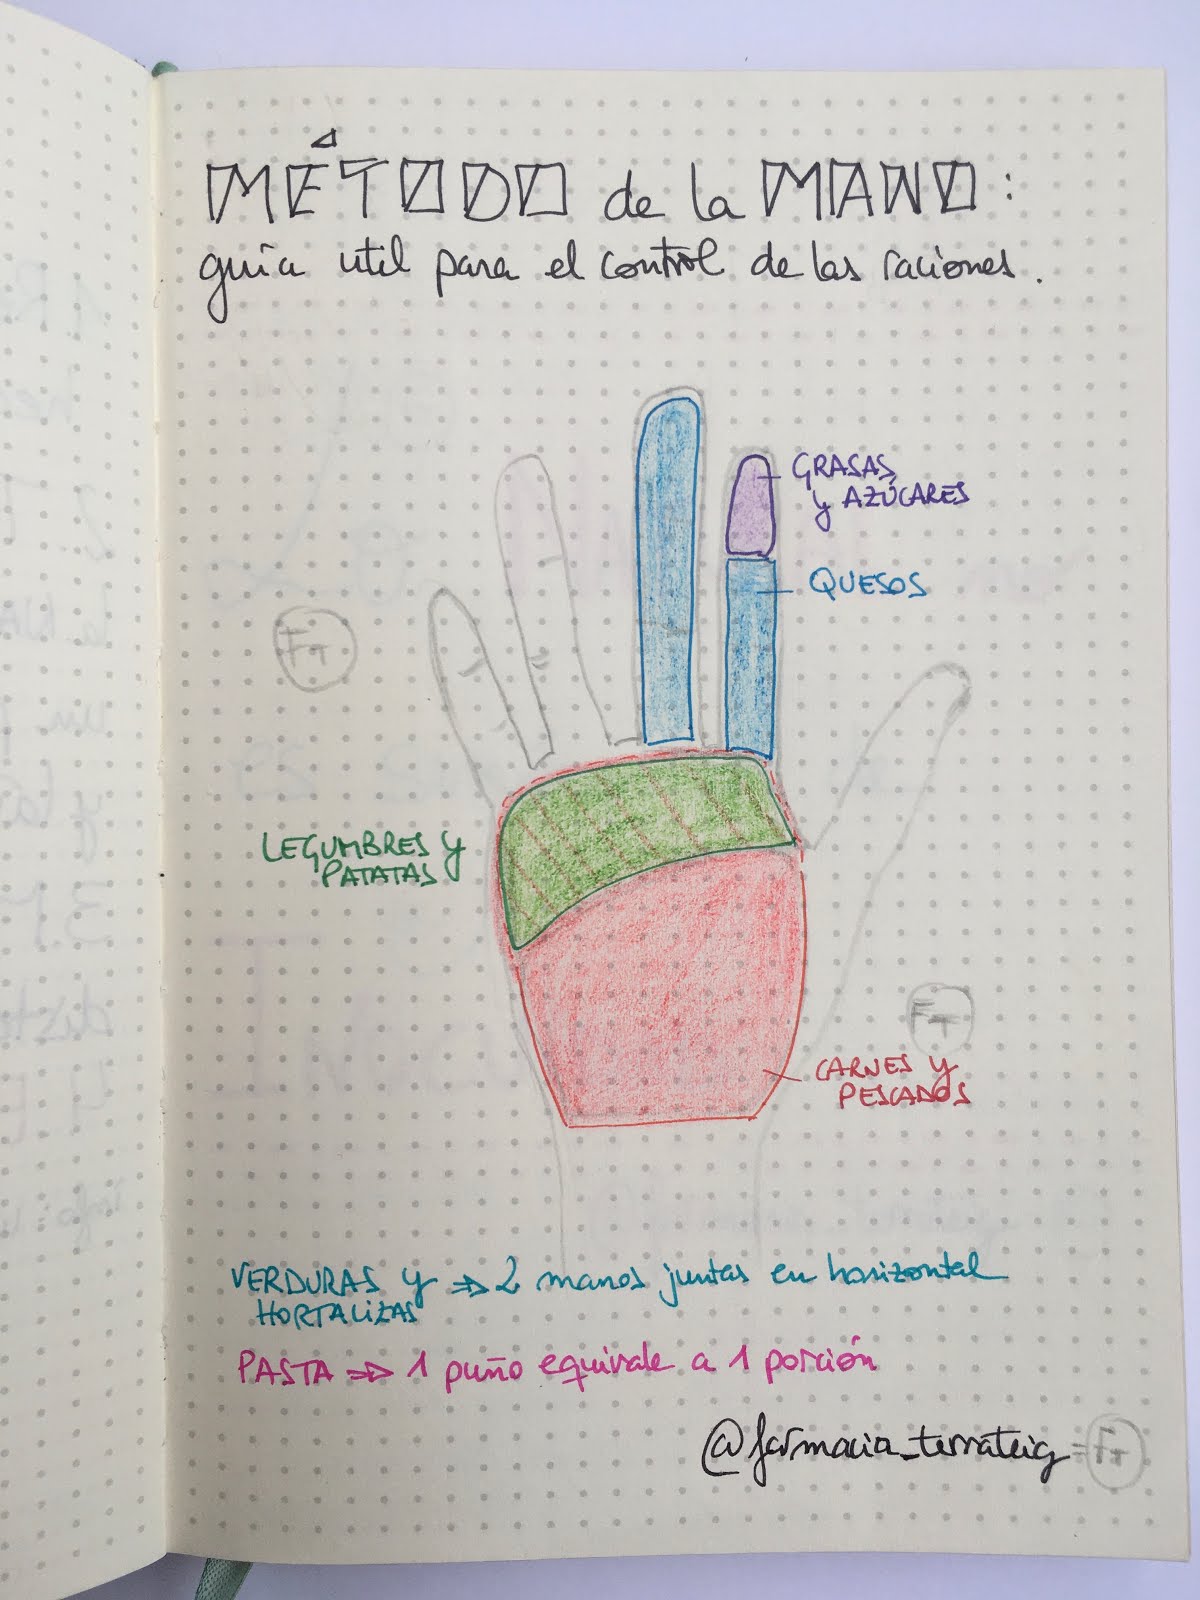 MÉTODO de la MANO:
guía util para el control de las raciones.
GRASAS
y AZÚCARES
QUESOS
FT
LEGUMBRES y
PATATAS
FT
CARNES y
PESCADOS
VERDURAS y ⇒ 2 manos juntas en horizontal
HORTALIZAS
PASTA ⇒ 1 puño equivale a 1 porción
@farmacia_terrateig = FT